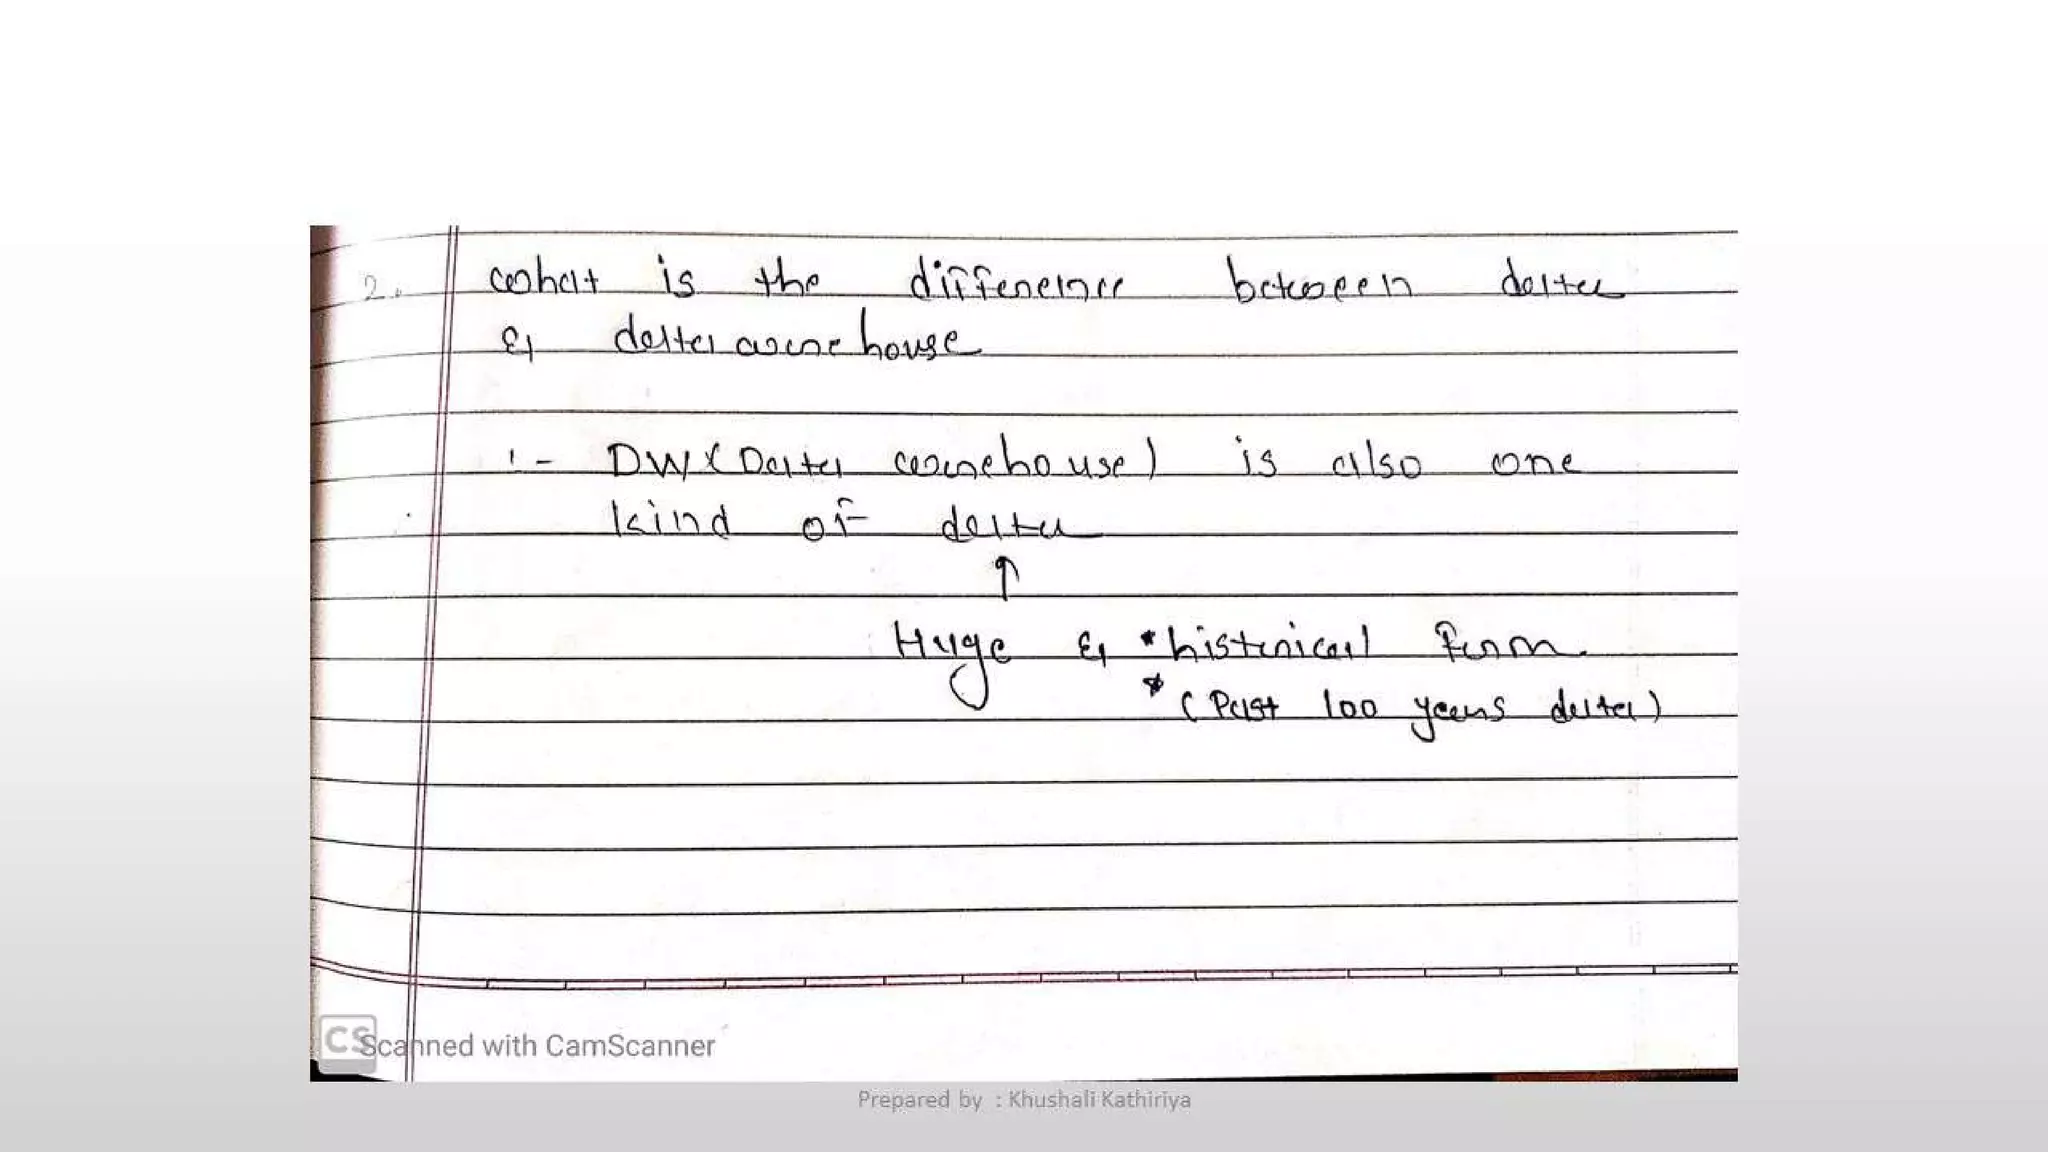 2. what is the difference between data
& datawarehouse
:- DW (Data warehouse) is also one
kind of data
↑
Huge & * historical form.
* (Past 100 years data)
CS Scanned with CamScanner
Prepared by : Khushali Kathiriya